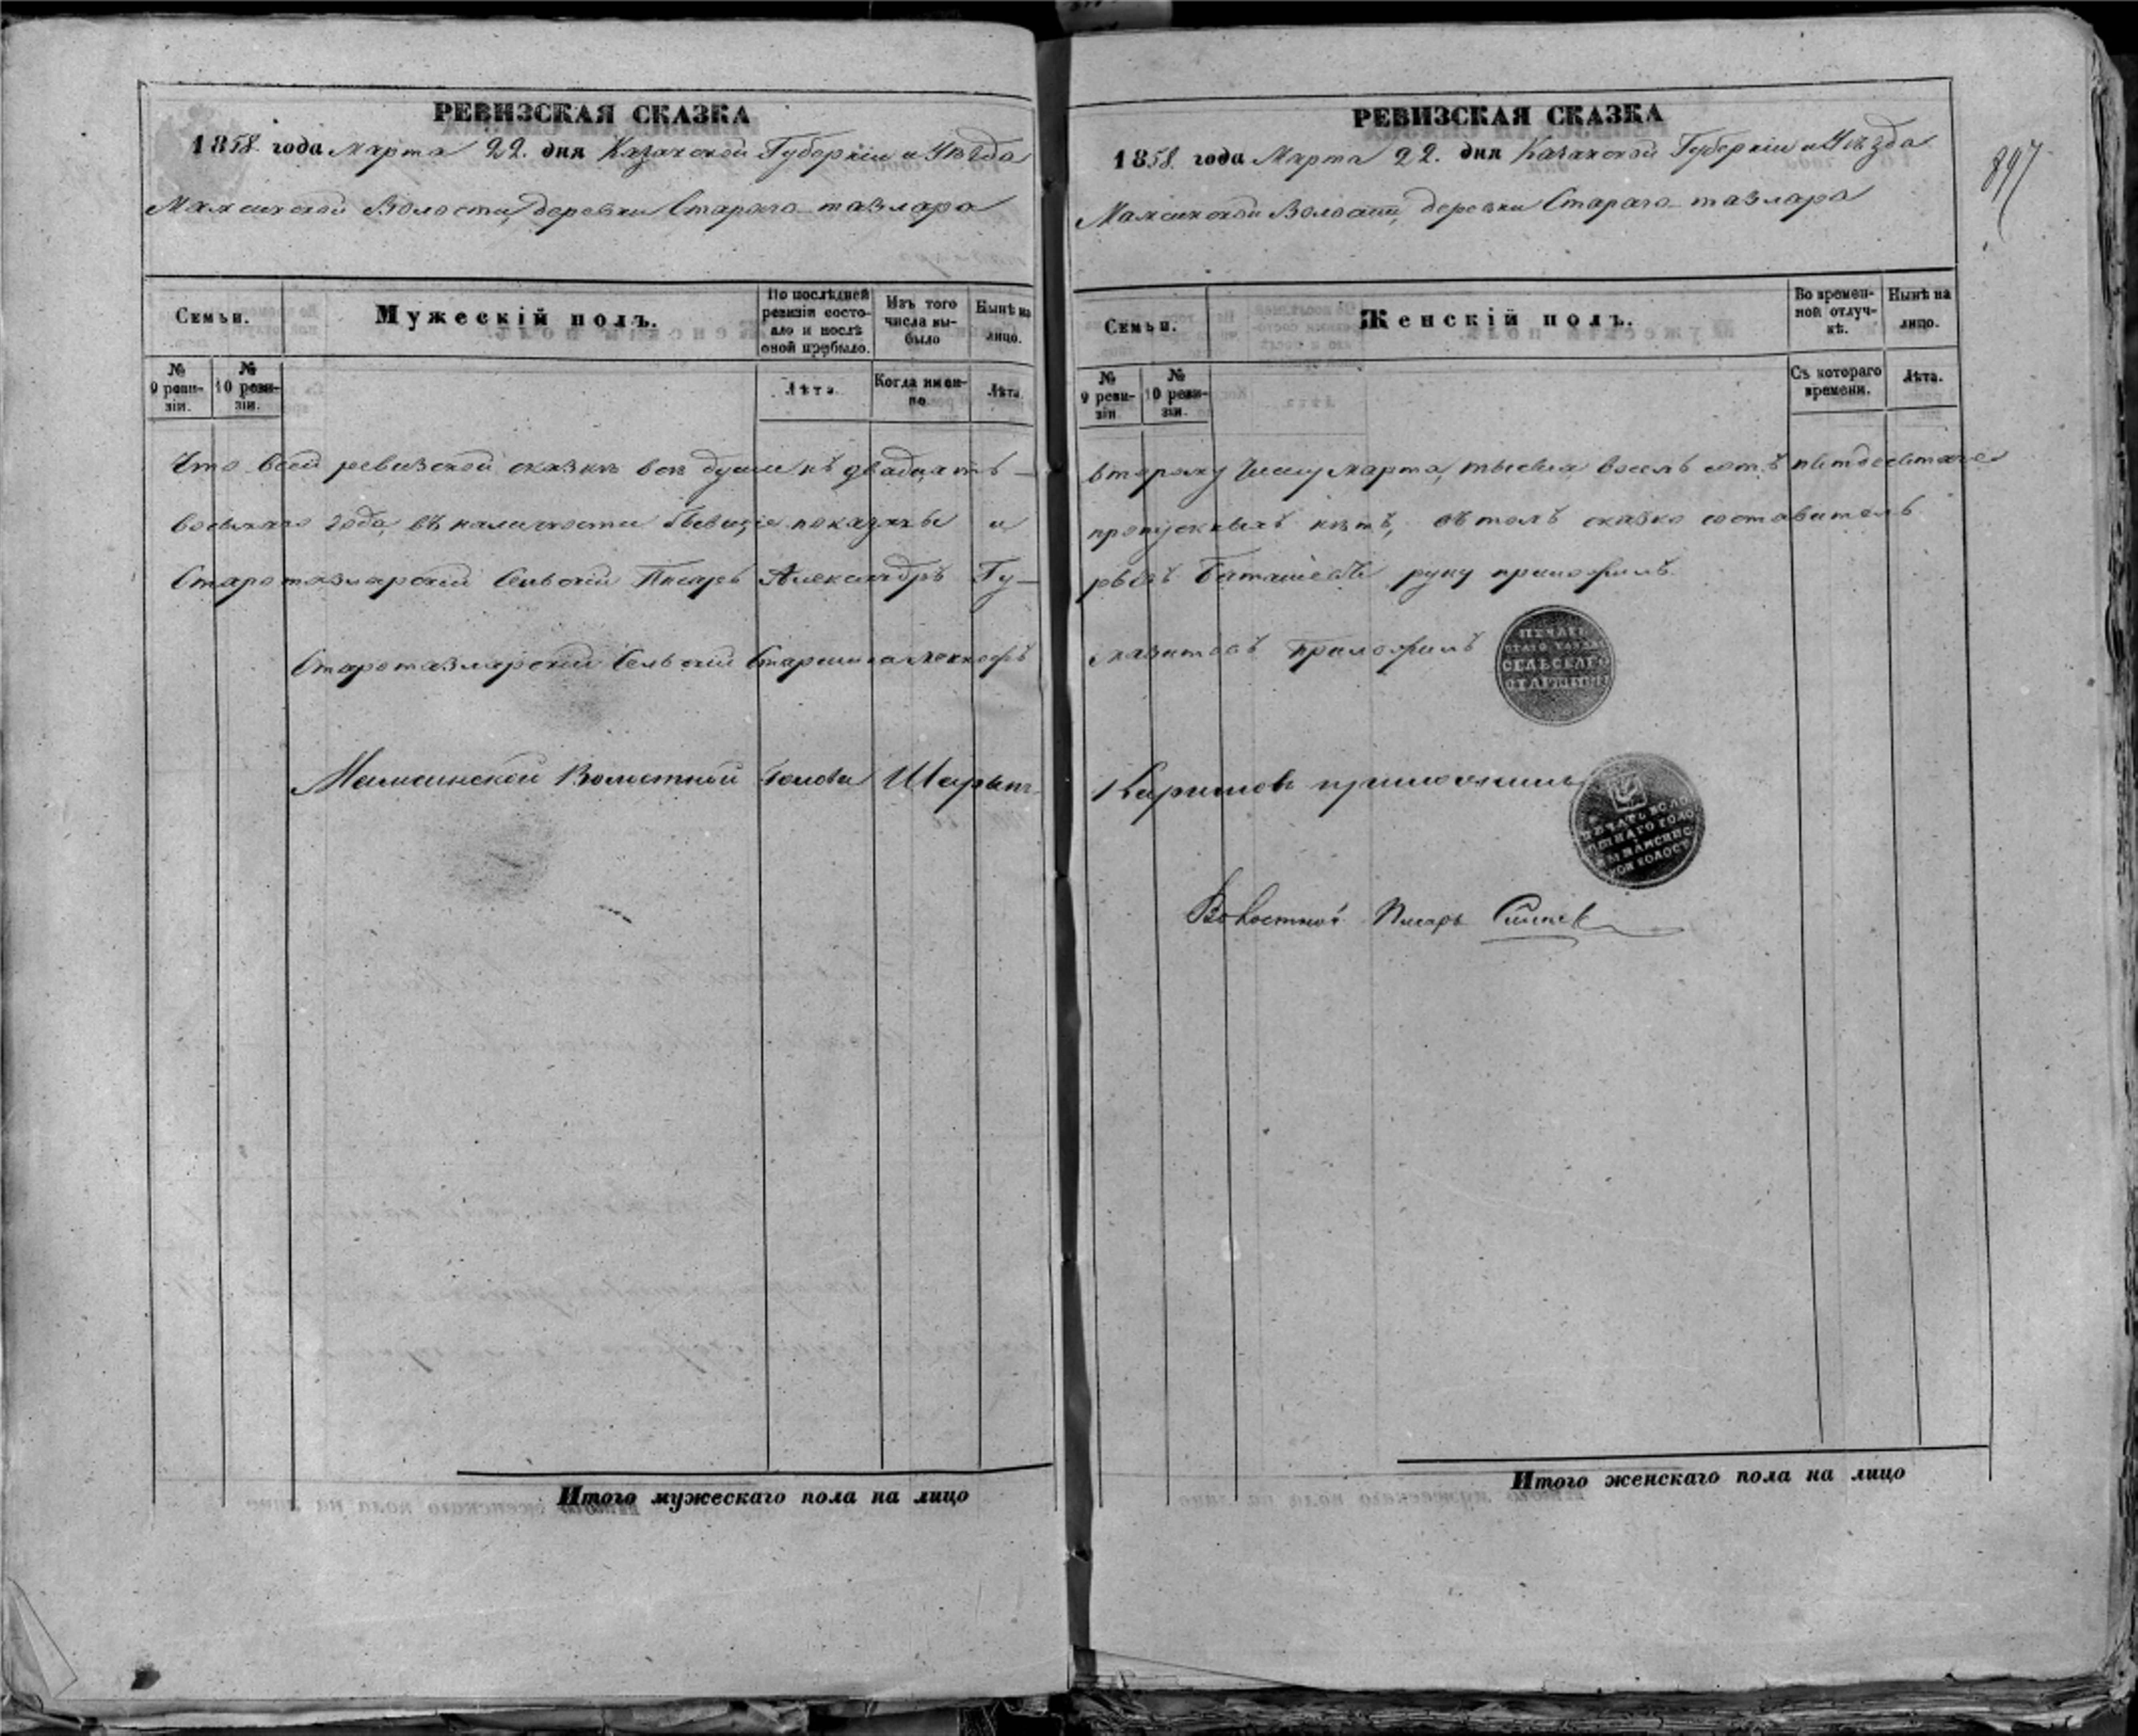 РЕВИЗСКАЯ СКАЗКА
1858 года Марта 22. дня Казанской Губернии и Уѣзда
Мамсинской Волости, деревни Стараго тазлара
Семьи.
Мужескій полъ.
По послѣдней ревизіи состояло и послѣ оной прибыло.
Изъ того числа выбыло
Нынѣ на лицо.
№ 9 ревизіи.
№ 10 ревизіи.
Лѣта.
Когда именно.
Лѣта.
Что всей ревизской сказкѣ всѣ души къ двадцать
восьмаго года, въ наличности бывщіе показаны и
Старотазларскій Сельскій Писарь Александръ Гу-
Старотазларскій Сельскій Старшина
Мамсинской Волостной Голова
Итого мужескаго пола на лицо
РЕВИЗСКАЯ СКАЗКА
1858. года Марта 22. дня Казанской Губерніи и Уѣзда
Мамсинской Волости, деревни Стараго тазлара
897
Семьи.
Женскій полъ.
Во временной отлучкѣ.
Нынѣ на лицо.
№ 9 ревизіи
№ 10 ревизіи.
Съ котораго времени.
Лѣта.
второму числу марта, тысяча восемь сотъ пятдесятаго
пропускныхъ нѣтъ, въ томъ сказко составитель
руку приложилъ.
приложилъ
ПЕЧАТЬ
СЕЛЬСКАГО
СТАРШИНЫ
Каримовъ приложилъ
ПЕЧАТЬ ВОЛО
СТНАГО ГОЛО
ВЫ МАМСИНС
КОЙ ВОЛОСТ
Волостной Писарь
Итого женскаго пола на лицо